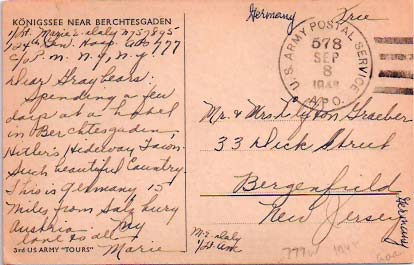 KÖNIGSSEE NEAR BERCHTESGADEN
1/Lt. Marie E. Daly N757845
104th Gen. Hosp. APO 777
c/o P.M. N.Y., N.Y.
Dear Graybears:
Spending a few
days at a hotel
in Berchtesgaden,
Hitler's Hideway Town.
Such beautiful Country.
This is Germany 15
miles from Salzburg
Austria. My
love to all
Marie
3rd US ARMY "TOURS"
Germany
Free
U.S. ARMY POSTAL SERVICE
578
SEP
8
A.P.O.
Mr. & Mrs. Clifton Graeber
33 Dick Street
Bergenfield
New Jersey
M.E. Daly
1/Lt. ANC
Germany